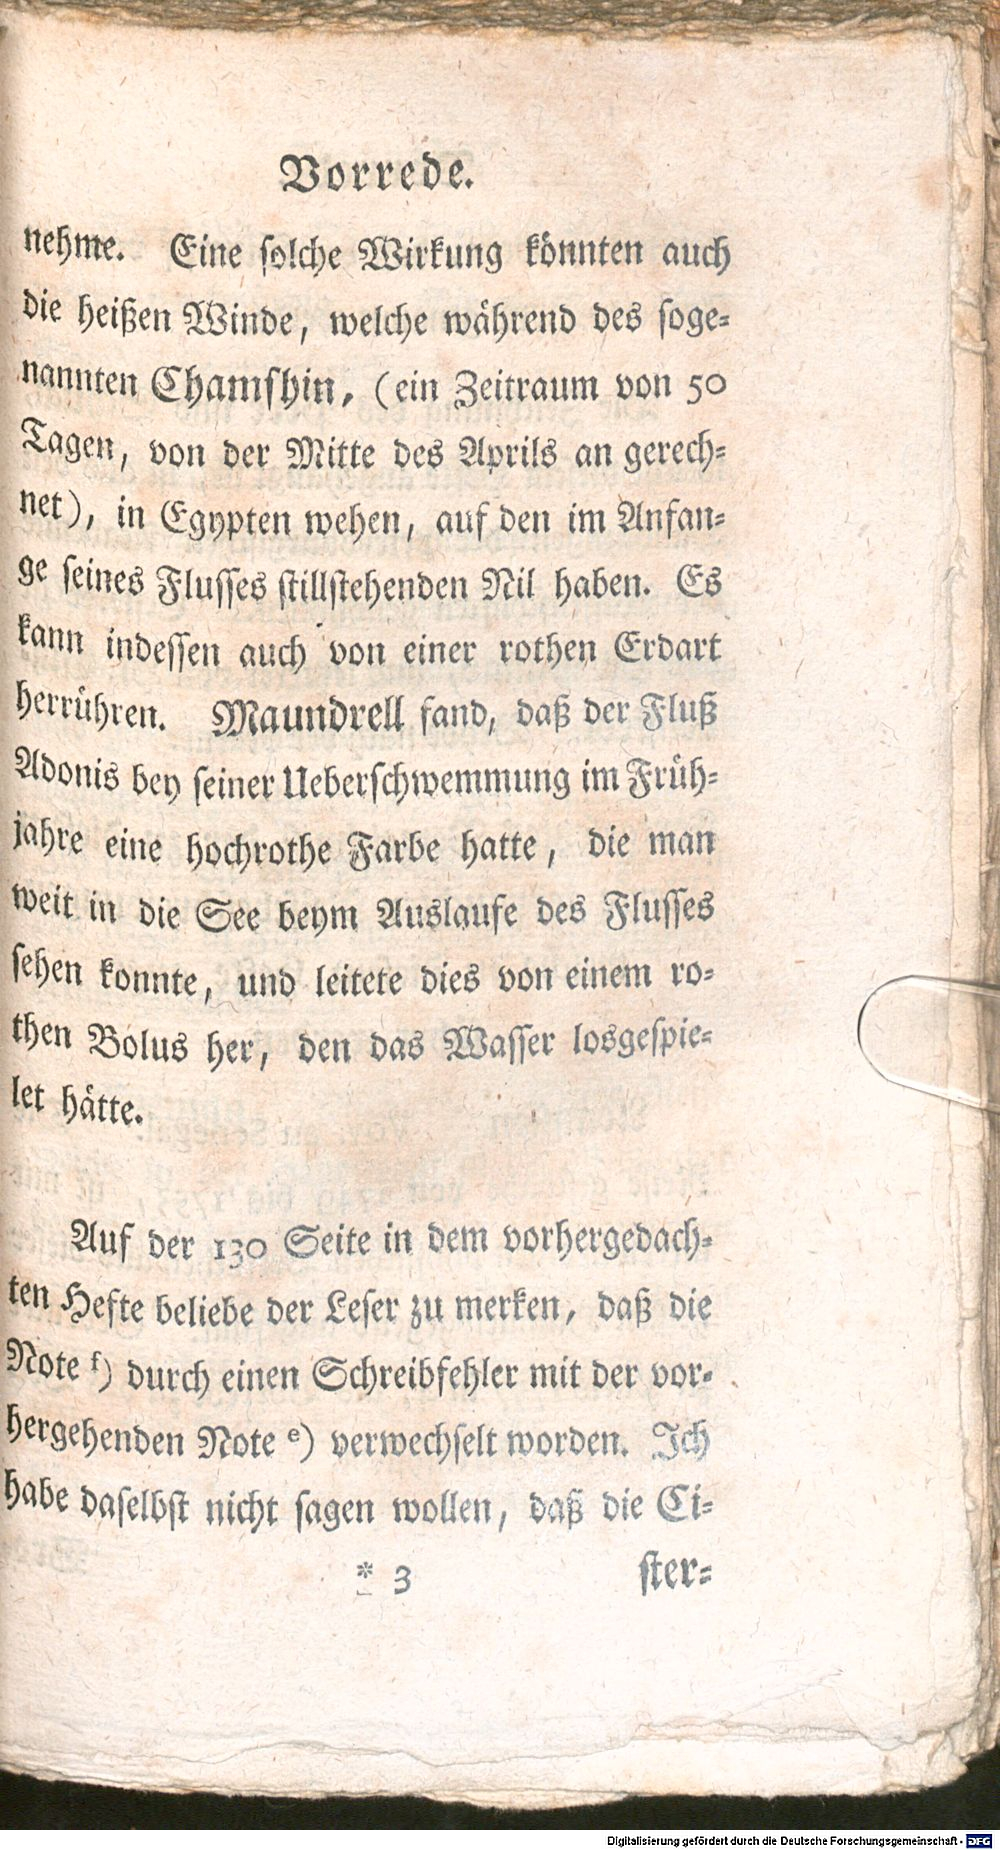 Vorrede.
nehme. Eine solche Wirkung könnten auch
die heißen Winde, welche während des soge-
nannten Chamshin, (ein Zeitraum von 50
Tagen, von der Mitte des Aprils an gerech-
net), in Egypten wehen, auf den im Anfan-
ge seines Flusses stillstehenden Nil haben. Es
kann indessen auch von einer rothen Erdart
herrühren. Maundrell fand, daß der Fluß
Adonis bey seiner Ueberschwemmung im Früh-
jahre eine hochrothe Farbe hatte, die man
weit in die See beym Auslaufe des Flusses
sehen konnte, und leitete dies von einem ro-
then Bolus her, den das Wasser losgespie-
let hätte.
Auf der 130 Seite in dem vorhergedach-
ten Hefte beliebe der Leser zu merken, daß die
Note f) durch einen Schreibfehler mit der vor-
hergehenden Note e) verwechselt worden. Ich
habe daselbst nicht sagen wollen, daß die Ci-
* 3 ster-
Digitalisierung gefördert durch die Deutsche Forschungsgemeinschaft - DFG